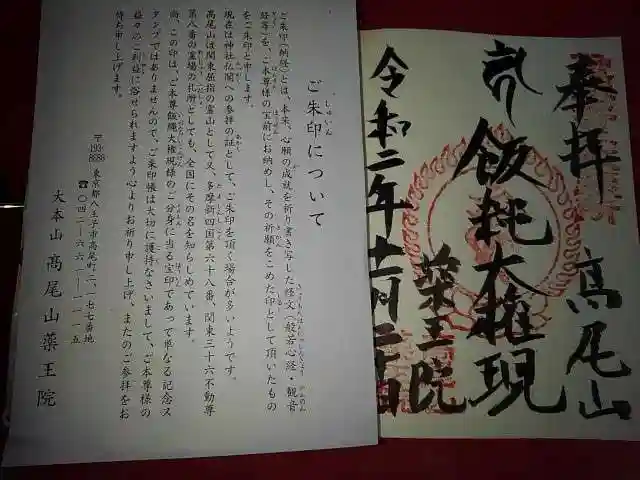 ご朱印について
ご朱印(納経)とは、本来、心願の成就を祈り書き写した経文(般若心経・観音
経等)を、ご本尊様の宝前にお納めし、その祈願をこめた印として頂いたもの
をご朱印と申します。
現在は神社仏閣への参拝の証として、ご朱印を頂く場合が多いようです。
高尾山は関東屈指の霊山として又、多摩新四国第六十八番、関東三十六不動尊
第八番の霊場の札所としても、全国にその名を知らしめています。
尚、この印は、ご本尊飯縄大権現様のご分身に当る宝印であって単なる記念ス
タンプではありませんので、ご朱印帳は大切に護持なさいまして、ご本尊様の
益々のご利益に浴せられますよう心よりお祈り申し上げ、またのご参拝をお
待ち申し上げます。
〒193-8686 東京都八王子市高尾町二一七七番地
☎〇四二-六六一-一一一五
大本山 高尾山薬王院
奉拝 高尾山
飯縄大権現
薬王院
令和二年十一月二十